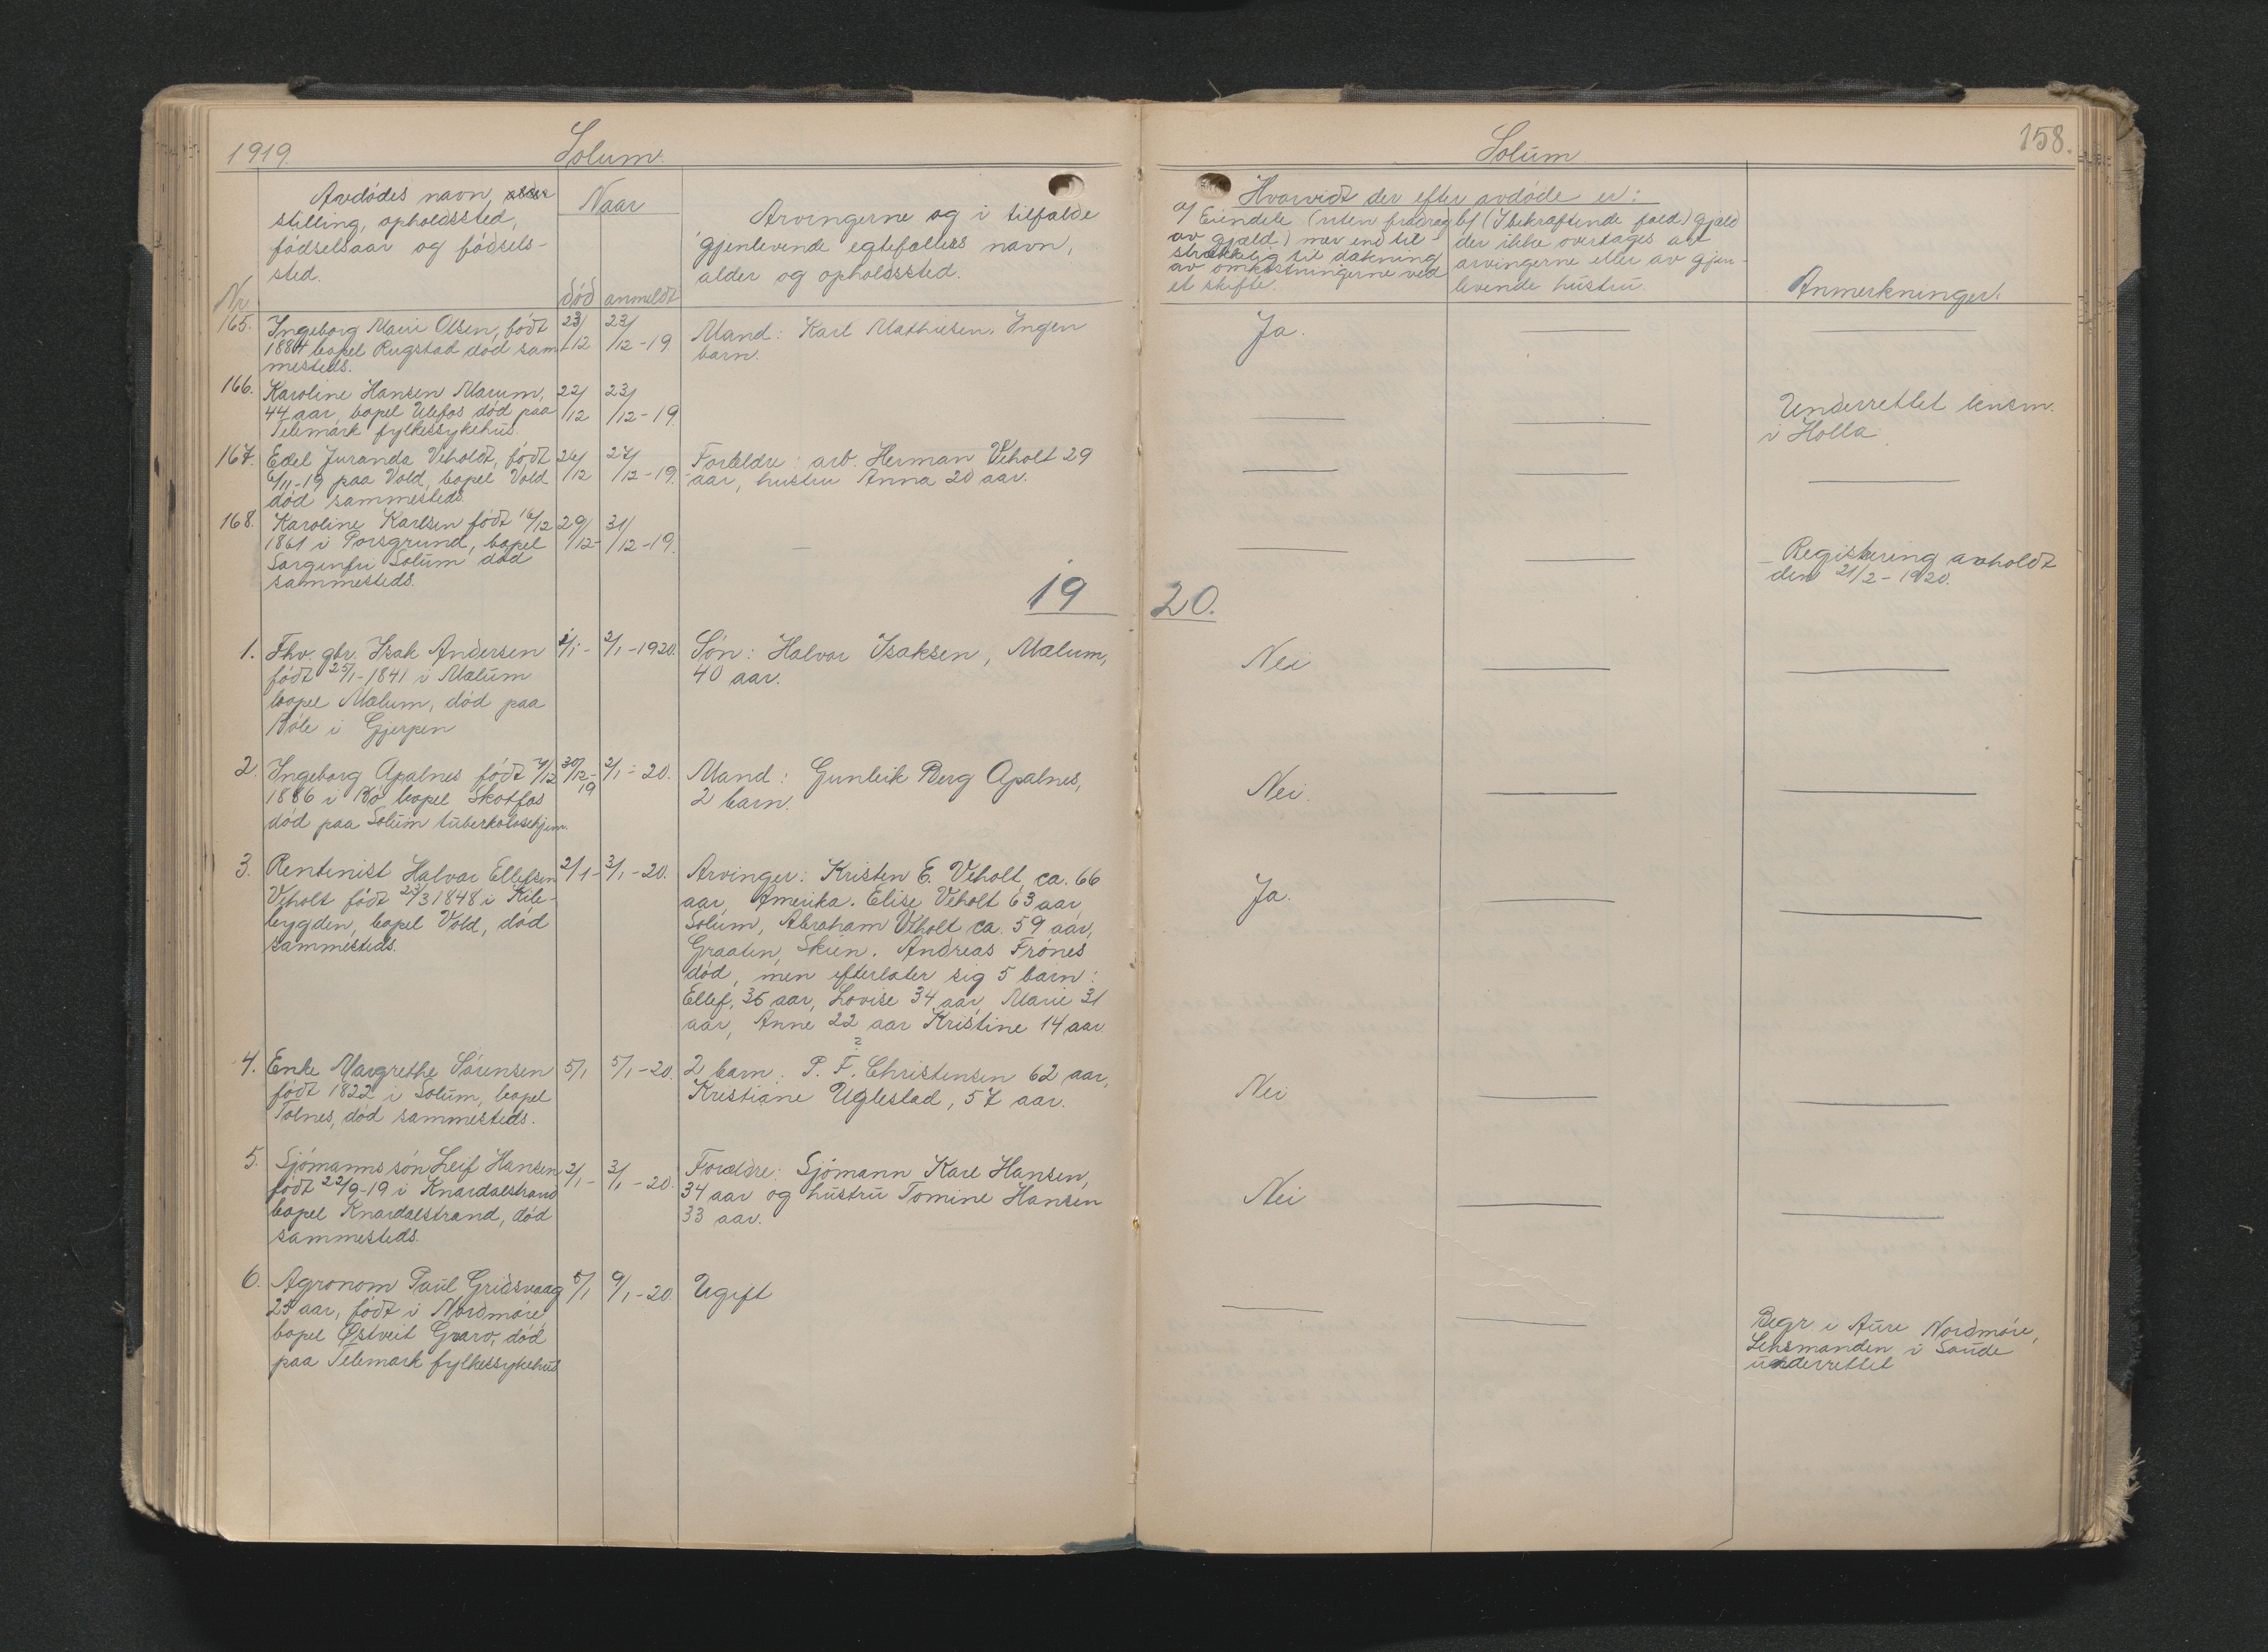 1919. Solum.
Avdødes navn,
stilling, opholdssted,
fødselsaar og fødsels-
sted.
Nr.
Naar
død anmeldt
Arvingerne og i tilfælde
gjenlevende egtefælles navn,
alder og opholdssted.
165. Ingeborg Marie Olsen, født
1884 bopel Rugstad død sam-
mesteds.
23/12 23/12-19
Mand: Karl Mathiesen. Ingen
barn.
166. Karoline Hansen Marum,
44 aar, bopel Ulefos død paa
Telemark fylkessykehus.
22/12 23/12-19.
167. Edel Juranda Veholdt, født
6/11-19 paa Vold, bopel Vold
død sammesteds.
26/12 27/12-19.
Forældre: arb. Herman Veholt 29
aar, hustru Anna 20 aar.
168. Karoline Karlsen født 16/12
1861 i Porsgrund, bopel
Sorgenfri Solum død
sammesteds.
29/12- 31/12-19.
19
1. Fhv. gbr. Isak Andersen
født 25/1-1841 i Mælum
bopel Mælum, død paa
Bøle i Gjerpen
1/1- 2/1-1920.
Søn: Halvor Isaksen, Mælum,
40 aar.
2. Ingeborg Apalnes født 4/12
1886 i Bø bopel Skotfos
død paa Solum tuberkulosehjem.
30/12-19 2/1-20.
Mand: Gunleik Berg Apalnes,
2 barn.
3. Rentenist Halvor Ellefsen
Veholt født 23/3 1848 i Kile-
bygden, bopel Vold, død
sammesteds.
2/1- 3/1-20.
Arvinger: Kristen E. Veholt, ca. 66
aar, Amerika. Elise Veholt 63 aar,
Solum, Abraham Veholt ca. 59 aar,
Graaten, Skien. Andreas Frønes
død, men efterlater sig 5 barn:
Ellef, 36 aar, Lovise 34 aar, Marie 31
aar, Anne 22 aar Kristine 14 aar.
?
4. Enke Margrethe Sørensen
født 1822 i Solum, bopel
Tolnes, død sammesteds.
5/1 5/1-20.
2 barn: P. F. Christensen 62 aar,
Kristiane Uglestad, 57 aar.
5. Sjømanns søn Leif Hansen
født 22/9-19 i Knardalstrand
bopel Knardalstrand, død
sammesteds.
2/1- 3/1-20.
Forældre: Sjømann Karl Hansen,
34 aar og hustru Tomine Hansen
33 aar.
6. Agronom Paul Gridsvaag
27 aar, født i Nordmøre,
bopel Østveit Gvarv, død
paa Telemark fylkessykehus
5/1 9/1-20.
Ugift
Solum 158.
Hvorvidt der efter avdøde er:
a/ Eiendele (uten fradrag
av gjæld) mer end til-
strækkelig til dækning
av omkostningerne ved
et skifte.
b/ (I bekræftende fald) gjæld
der ikke overtages av
arvingerne eller av gjen-
levende hustru.
Anmerkninger.
Ja.
Underrettet lensm.
i Holla.
Registrering avholdt
den 21/2-1920.
20.
Nei
Nei.
Ja.
Nei
Nei
Begr. i Aure Nordmøre,
Lensmanden i Saude
underrettet